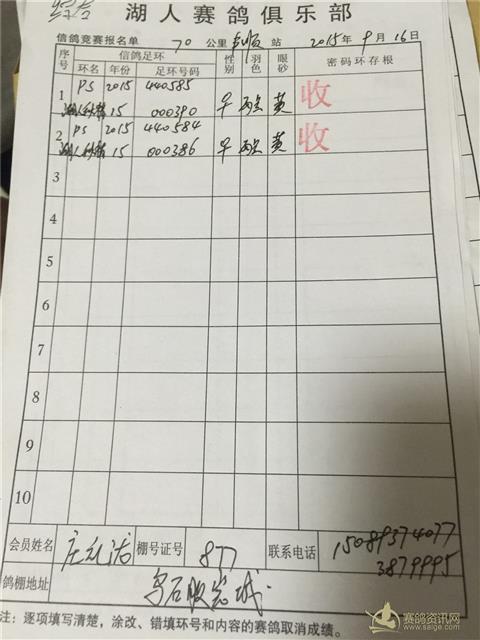 湖人赛鸽俱乐部
信鸽竞赛报名单 70 公里 站 2015年9月16日
序号 信鸽足环 性别 羽色 眼砂 密码环存根
环名 年份 足环号码
1 PS 2015 440585 收
湖人 15 000390 黄
2 PS 2015 440584 收
湖人 15 000386 黄
3
4
5
6
7
8
9
10
会员姓名 庄 棚号证号 877 联系电话 15089374077
3879995
鸽棚地址 乌石 城
注：逐项填写清楚，涂改、错填环号和内容的赛鸽取消成绩。
赛鸽资讯网
www.saige.com